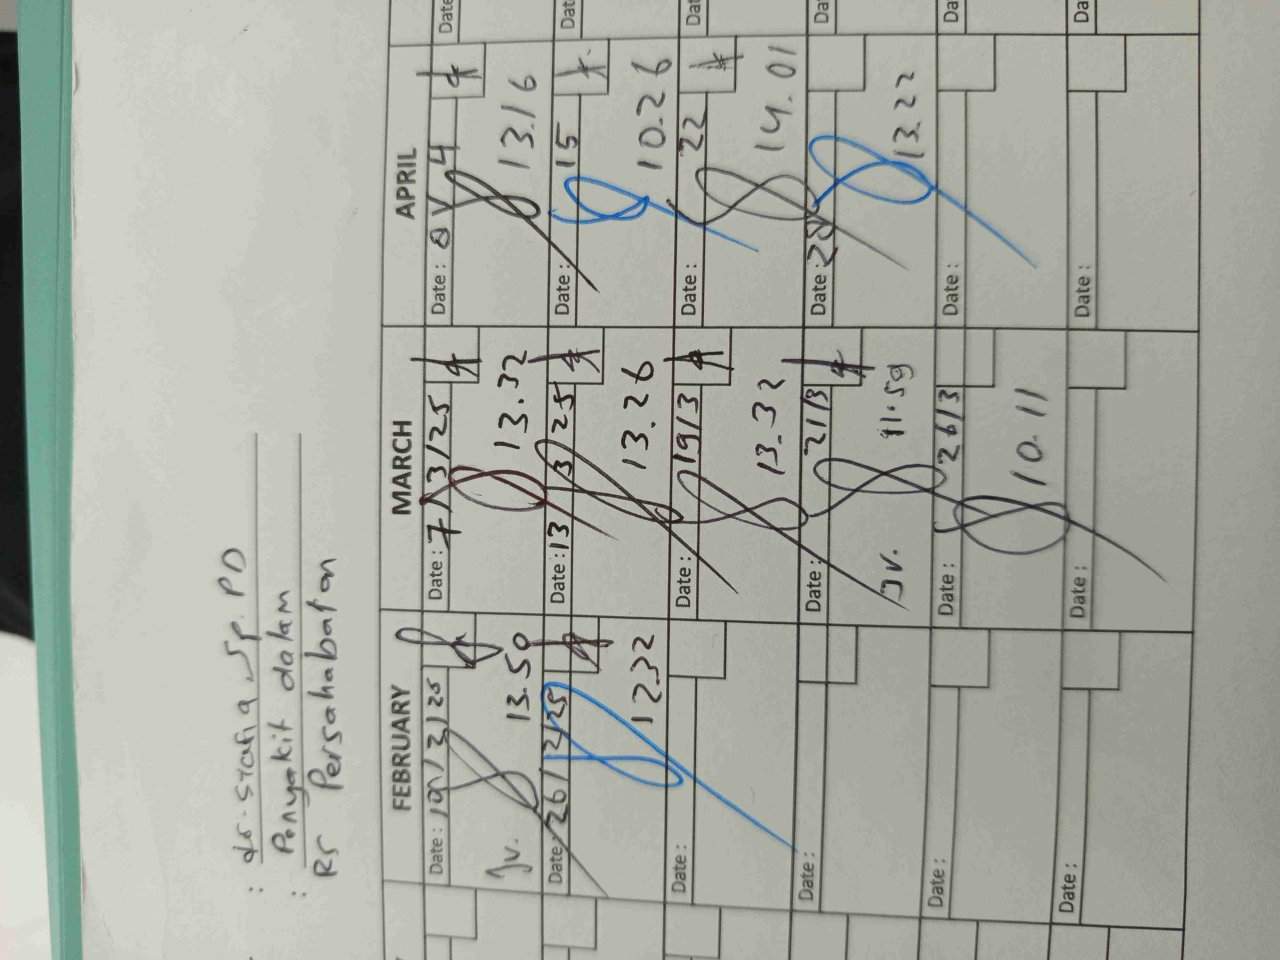 : dr. Stafia Sp. PD
Penyakit dalam
: RS Persahabatan
FEBRUARY MARCH APRIL
Date: 19/2/25 Date: 7/3/25 Date: 8/4 Date
Jv. 13.50 13.32 13.16
Date: 26/2/25 Date: 13/3/25 Date: 15 Date
12.32 13.26 10.26
Date: Date: 19/3 Date: 22 Dat
13.32 14.01
Date: Date: 21/3 Date: 28 Da
Jv. 11.59 13.22
Date: Date: 26/3 Date: Da
10.11
Date: Date: Date: Da